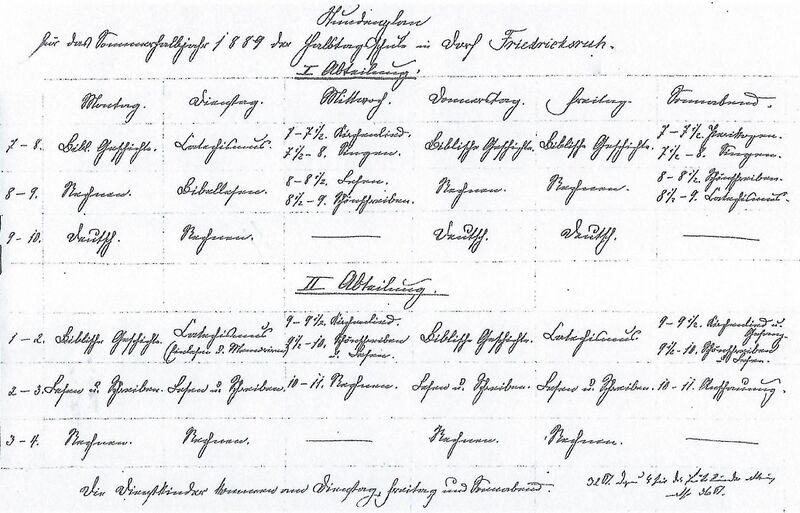 Stundenplan
für das Sommerhalbjahr 1889 der Halbtagsschule in Dorf Friedrichsruh.
I Abteilung.
Montag. Dienstag. Mittwoch. Donnerstag. Freitag. Sonnabend.
7-8. Bibl. Geschichte. Catechismus. 7-7½. Kirchenlied. Biblische Geschichte. Biblische Geschichte. 7-7½. Perikopen.
7½-8. Singen. 7½-8. Singen.
8-9. Rechnen. Bibellesen. 8-8½. Lesen. Rechnen. Rechnen. 8-8½. Schönschreiben.
8½-9. Schönschreiben. 8½-9. Catechismus.
9-10. Deutsch. Rechnen. Deutsch. Deutsch.
II Abteilung.
1-2. Biblische Geschichte. Catechismus 9-9½. Kirchenlied. Biblische Geschichte. Catechismus. 9-9½. Kirchenlied u.
(Einlesen d. Memorieren) 9½-10. Schönschreiben 9½-10. Schönschreiben
u. Lesen. u. Lesen.
2-3. Lesen u. Schreiben. Lesen u. Schreiben. 10-11. Rechnen. Lesen u. Schreiben. Lesen u. Schreiben. 10-11. Anschauung.
3-4. Rechnen. Rechnen. Rechnen. Rechnen.
Die Dienstkinder kommen am Dienstag, Freitag und Sonnabend.
32 St. 4 für die
36 St.